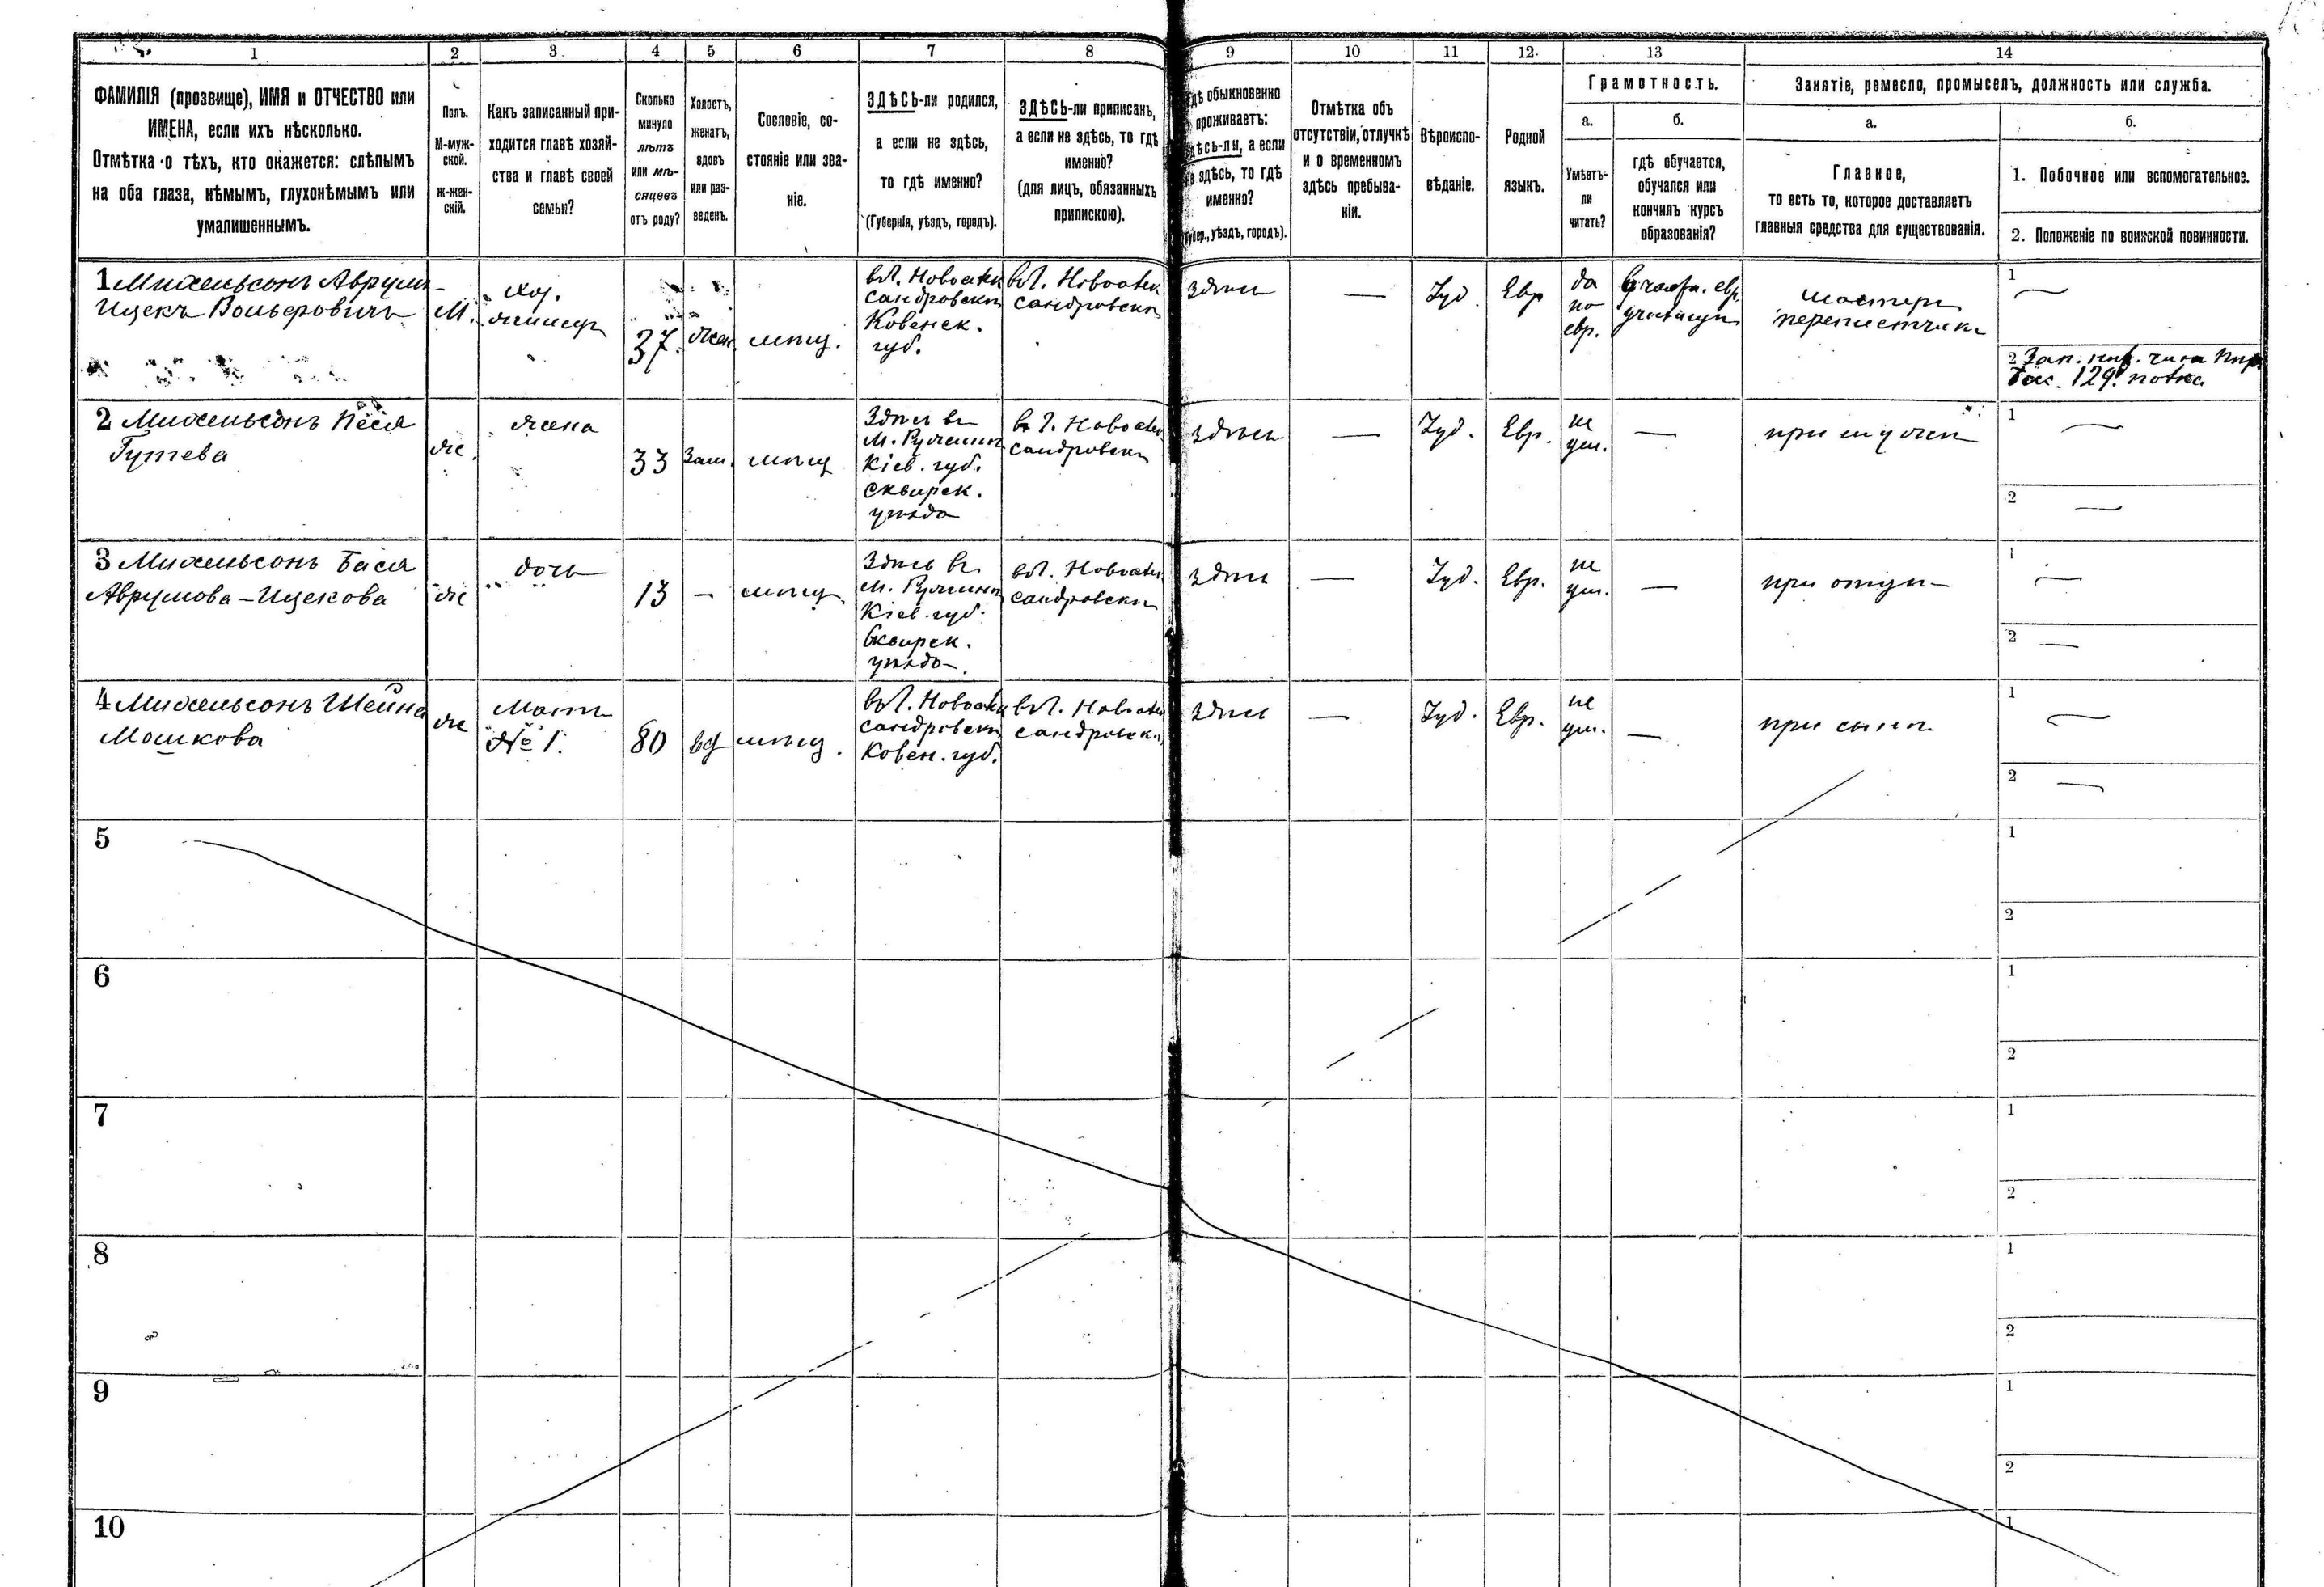 1
2
3
4
5
6
7
8
9
10
11
12
13
14
ФАМИЛІЯ (прозвище), ИМЯ и ОТЧЕСТВО или
ИМЕНА, если ихъ нѣсколько.
Отмѣтка о тѣхъ, кто окажется: слѣпымъ
на оба глаза, нѣмымъ, глухонѣмымъ или
умалишеннымъ.
Полъ.
М-муж-
ской.
ж-жен-
скій.
Какъ записанный при-
ходится главѣ хозяй-
ства и главѣ своей
семьи?
Сколько
минуло
лѣтъ
или мѣ-
сяцевъ
отъ роду?
Холостъ,
женатъ,
вдовъ
или раз-
веденъ.
Сословіе, со-
стояніе или зва-
ніе.
ЗДѢСЬ-ли родился,
а если не здѣсь,
то гдѣ именно?
(Губернія, уѣздъ, городъ).
ЗДѢСЬ-ли приписанъ,
а если не здѣсь, то гдѣ
именно?
(для лицъ, обязанныхъ
припискою).
гдѣ обыкновенно
проживаетъ:
здѣсь-ли, а если
не здѣсь, то гдѣ
именно?
(Губер., уѣздъ, городъ).
Отмѣтка объ
отсутствіи, отлучкѣ
и о временномъ
здѣсь пребыва-
ніи.
Вѣроиспо-
вѣданіе.
Родной
языкъ.
Грамотность.
а.
Умѣетъ-
ли
читать?
б.
гдѣ обучается,
обучался или
кончилъ курсъ
образованія?
Занятіе, ремесло, промыселъ, должность или служба.
а.
Главное,
то есть то, которое доставляетъ
главныя средства для существованія.
б.
1. Побочное или вспомогательное.
2. Положеніе по воинской повинности.
1 Михельсонъ Аврумъ-
Ицекъ Вольферовичъ
М.
хоз.
37.
жен.
мѣщ.
въ г. Новоалек
сандровскѣ
Ковенск.
губ.
въ г. Новоалек
сандровскѣ
здѣсь
—
Іуд.
Евр
да
по
евр.
мастеръ
переплетчикъ
1
2 Зап.
129. полка
2 Михельсонъ Песя
ж.
жена
33
Зам.
мѣщ
Здѣсь въ
м. Ружинѣ
Кіев. губ.
Сквирск.
уѣзда
въ г. Новоалек
сандровскѣ
здѣсь
—
Іуд.
Евр.
не
ум.
—
при мужѣ
1
2
3 Михельсонъ Бася
Аврумова-Ицекова
ж
дочь
13
—
мѣщ.
Здѣсь въ
м. Ружинѣ
Кіев. губ.
Сквирск.
уѣзда
въ г. Новоалек
сандровскѣ
здѣсь
—
Іуд.
Евр.
не
ум.
—
при отцѣ
1
2
4 Михельсонъ Шейна
Мошкова
ж
Мать
№ 1.
80
вд
мѣщ.
въ г. Новоалек
сандровскѣ
Ковен. губ.
въ г. Новоалек
сандровскѣ
здѣсь
—
Іуд.
Евр.
не
ум.
—
при сынѣ
1
2
5
1
2
6
1
2
7
1
2
8
1
2
9
1
2
10
1